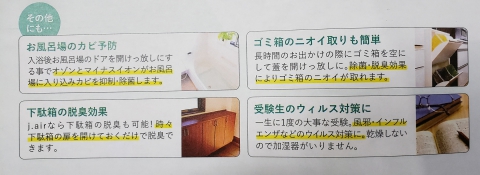 その他
にも…
お風呂場のカビ予防
入浴後お風呂場のドアを開けっ放しに
する事でオゾンとマイナスイオンがお風呂
場に入り込みカビを抑制・除菌します。
ゴミ箱のニオイ取りも簡単
長時間のお出かけの際にゴミ箱を空に
して蓋を開けっ放しに。除菌・脱臭効果
によりゴミ箱のニオイが取れます。
下駄箱の脱臭効果
j.airなら下駄箱の脱臭も可能!時々
下駄箱の扉を開けておくだけで脱臭で
きます。
受験生のウィルス対策に
一生に1度の大事な受験。風邪・インフル
エンザなどのウイルス対策に。乾燥しない
ので加湿器がいりません。